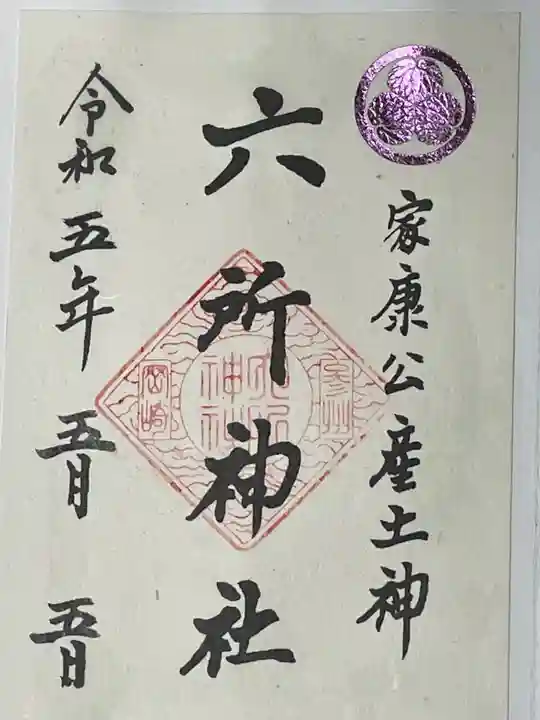 家康公産土神
六所神社
令和五年五月五日
参州
六所神社
岡崎